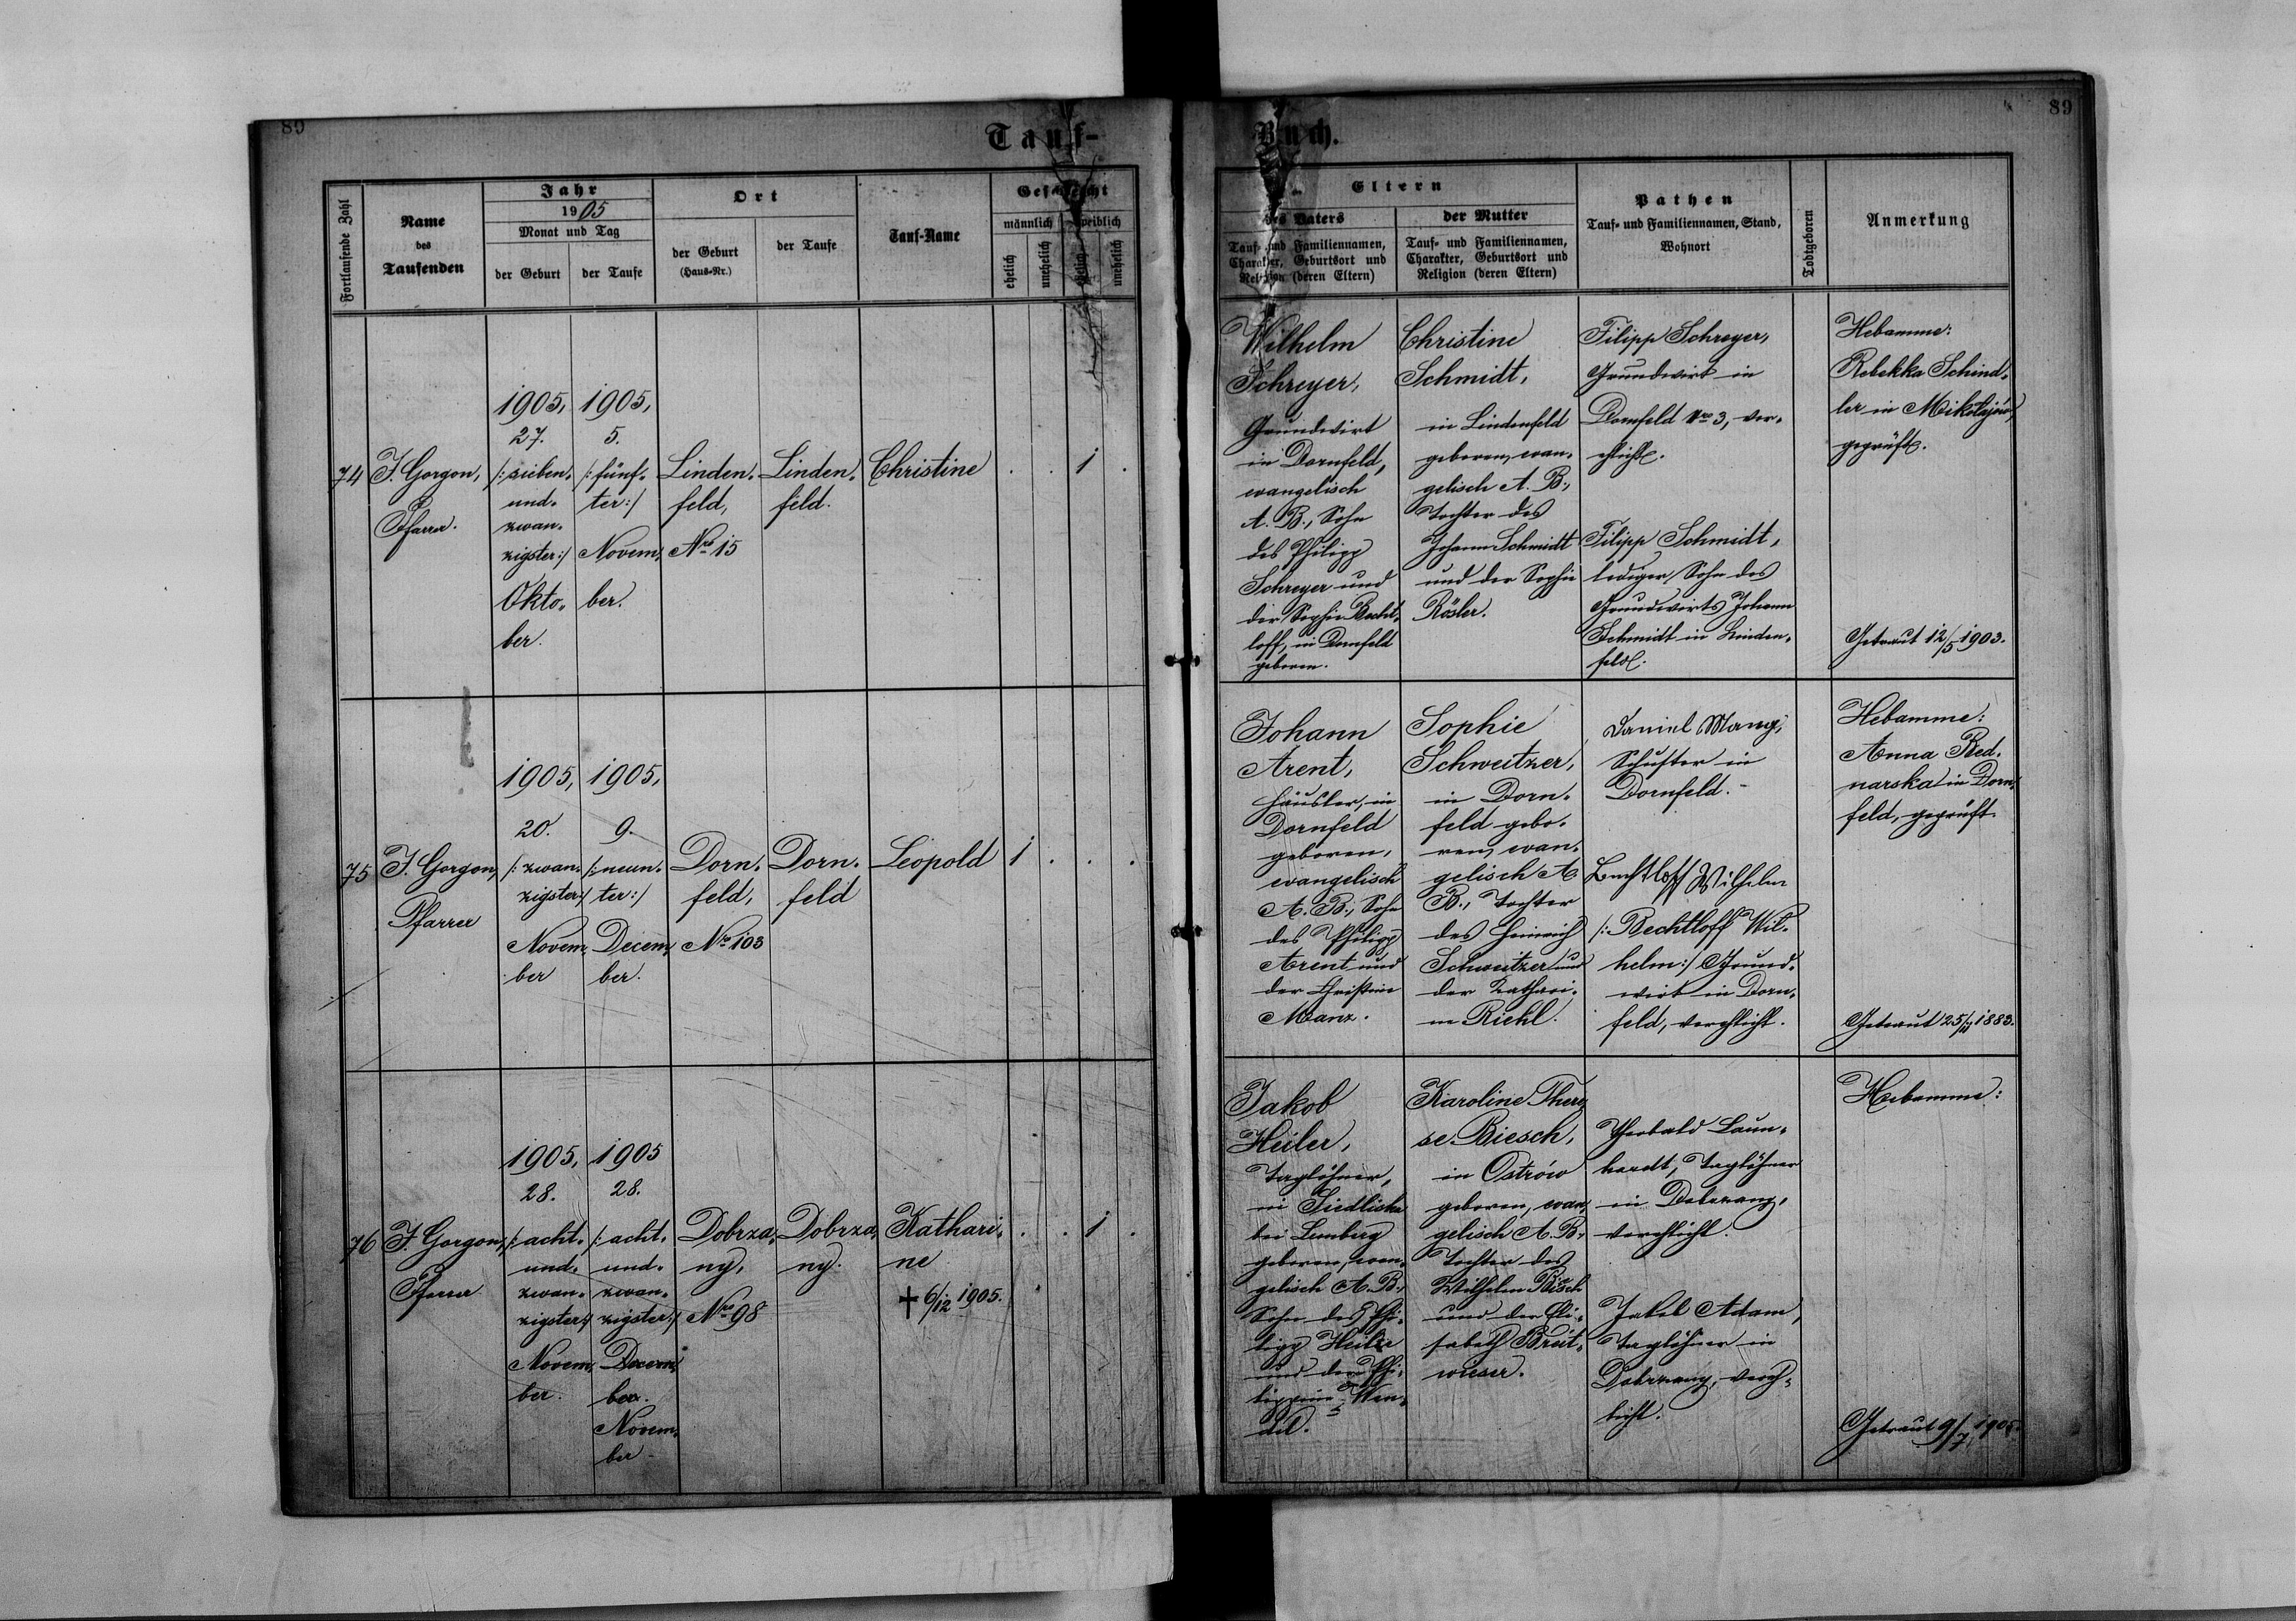 89
Tauf-
Fortlaufende Zahl
Name
des
Taufenden
Jahr
1905
Monat und Tag
der Geburt
der Taufe
Ort
der Geburt
(Haus-Nr.)
der Taufe
Tauf-Name
Geschlecht
männlich
weiblich
ehelich
unehelich
ehelich
unehelich
74
J. Gorgon,
Pfarrer.
1905,
27.
/:sieben-
und-
zwan-
zigster:/
Okto-
ber.
1905,
5.
/:fünf-
ter:/
Novem-
ber.
Linden-
feld,
Nro 15
Linden-
feld.
Christine
. . 1 .
75
J. Gorgon,
Pfarrer
1905,
20.
/:zwan-
zigster:/
Novem-
ber
1905,
9.
/:neun-
ter:/
Decem-
ber.
Dorn-
feld,
Nro 103
Dorn-
feld
Leopold
1 . . .
76
J. Gorgon,
Pfarrer
1905,
28.
/:acht-
und-
zwan-
zigster:/
Novem-
ber.
1905
28.
/:acht-
und-
zwan-
zigster:/
Decem-
ber.
Novem-
ber
Dobrza-
ny,
Nro 98
Dobrza-
ny.
Kathari-
ne
✝ 6/12 1905.
. . 1 .
Buch.
89
Eltern
des Vaters
Tauf- und Familiennamen,
Charakter, Geburtsort und
Religion (deren Eltern)
der Mutter
Tauf- und Familiennamen,
Charakter, Geburtsort und
Religion (deren Eltern)
Pathen
Tauf- und Familiennamen, Stand,
Wohnort
Todtgeboren
Anmerkung
Wilhelm
Schreyer,
Grundwirt
in Dornfeld,
evangelisch
A. B., Sohn
des Philipp
Schreyer und
der Sophie Becht-
loff, in Dornfeld
geboren.
Christine
Schmidt,
in Lindenfeld
geboren, evan-
gelisch A. B.,
Tochter des
Johann Schmidt
und der Sophie
Rösler.
Filipp Schreyer,
Grundwirt in
Dornfeld Nro 3, ver-
ehlicht.
Filipp Schmidt,
lediger Sohn des
Grundwirts Johann
Schmidt in Linden-
feld.
Hebamme:
Rebekka Schind-
ler in Mikołajów,
geprüft.
Getraut 12/5 1903.
Johann
Arent,
Häusler, in
Dornfeld
geboren,
evangelisch
A. B., Sohn
des Philipp
Arent und
der Christine
Manz.
Sophie
Schweitzer,
in Dorn-
feld gebo-
ren, evan-
gelisch A.
B., Tochter
des Heinrich
Schweitzer und
der Kathari-
ne Riehl.
Daniel Mang,
Schuster in
Dornfeld.
Bechtloff Wilhelm
/:Bechtloff Wil-
helm:/ Grund-
wirt in Dorn-
feld, verehlicht.
Hebamme:
Anna Bed-
narska in Dorn-
feld, geprüft.
Getraut 25/11 1883.
Jakob
Heiler,
Taglöhner,
in Siedliska
bei Lemberg
geboren, evan-
gelisch A. B.,
Sohn des Phi-
lipp Heiler
und der Phi-
lippine Wen-
del.
Karoline There-
se Biesch,
in Ostrów
geboren, evan-
gelisch A. B.,
Tochter des
Wilhelm Biesch
und der Eli-
sabeth Breit-
wieser.
Theobald Laun-
hardt, Taglöhner
in Dobrzany,
verehlicht.
Jakob Adam,
Taglöhner in
Dobrzany, vereh-
licht.
Hebamme:
Getraut 9/7 1905.